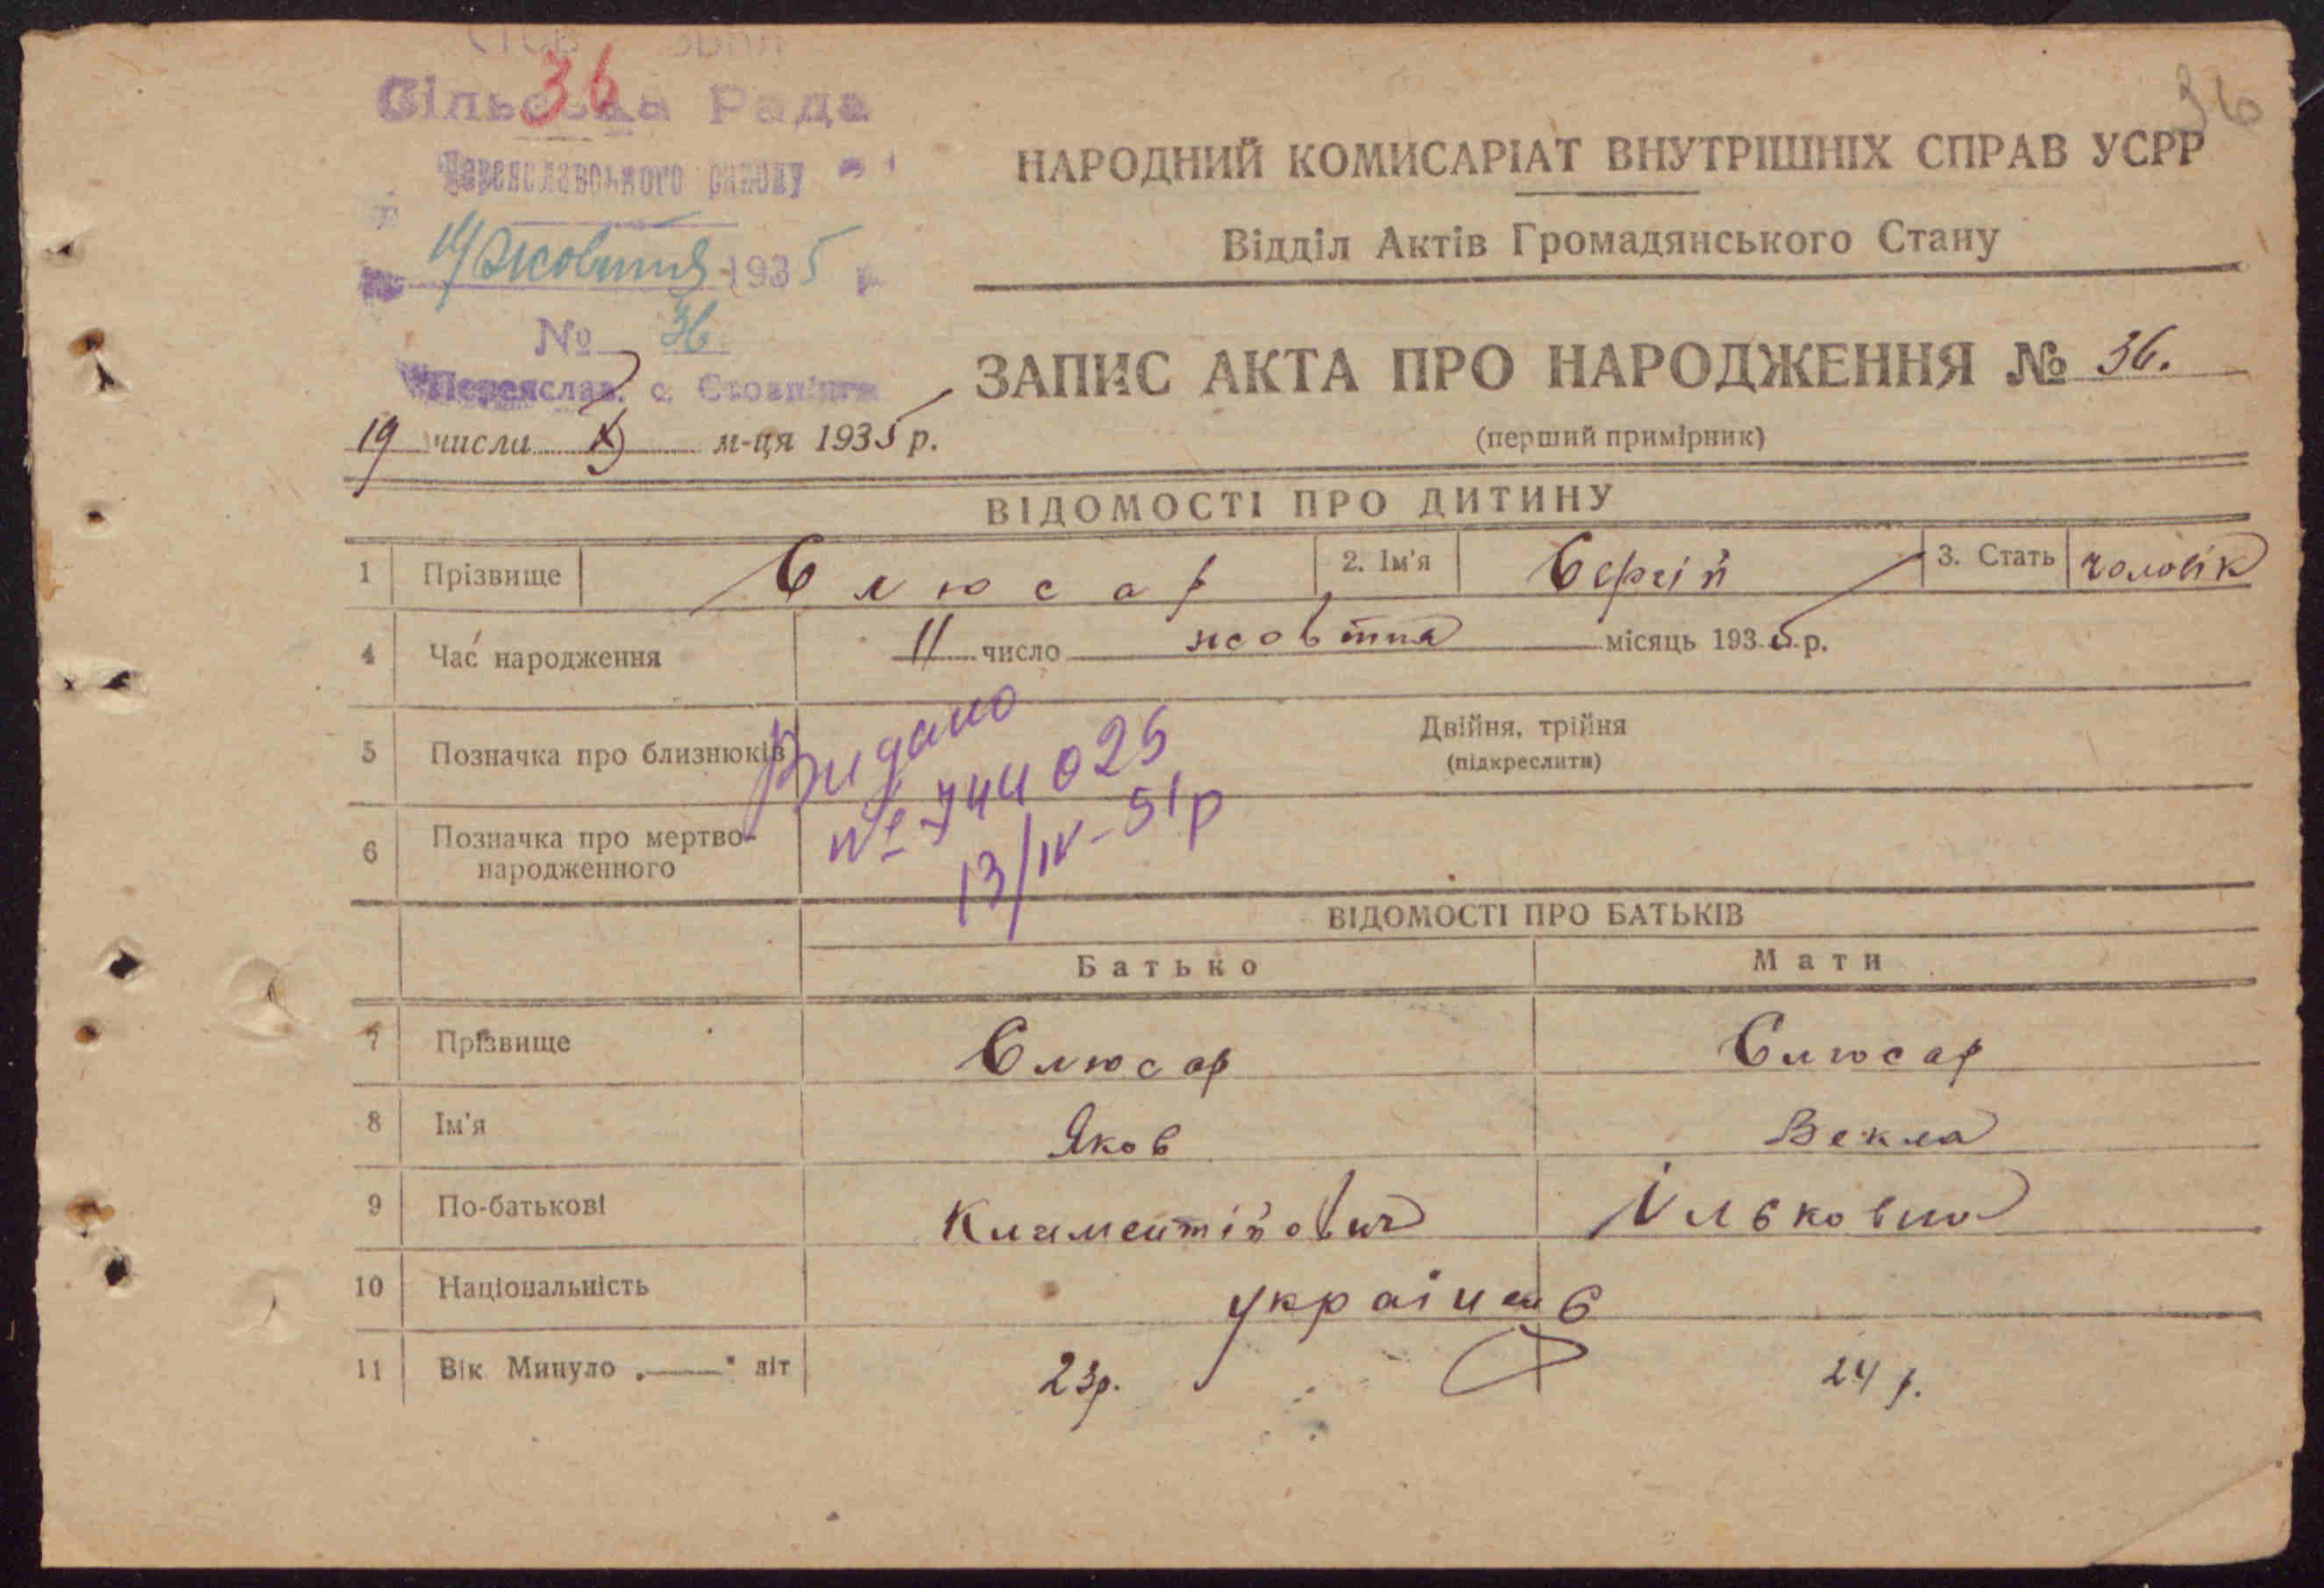 36
Сільська Рада
Переяславського району
19 жовтня 1935
№ 36
Переяслав. с.
19 числа X м-ця 1935 р.
36
НАРОДНИЙ КОМИСАРІАТ ВНУТРІШНІХ СПРАВ УСРР
Відділ Актів Громадянського Стану
ЗАПИС АКТА ПРО НАРОДЖЕННЯ № 36.
(перший примірник)
ВІДОМОСТІ ПРО ДИТИНУ
1 Прізвище Слюсар 2. Ім'я Сергій 3. Стать чоловік
4 Час народження 11 число жовтня місяць 1935 р.
5 Позначка про близнюків Двійня, трійня
(підкреслити)
Видано
№ 744025
13/IV-51р
6 Позначка про мертво-
народженного
ВІДОМОСТІ ПРО БАТЬКІВ
Батько Мати
7 Прізвище Слюсар Слюсар
8 Ім'я Яков Векла
9 По-батькові Климентійович Ільковна
10 Національність українц
11 Вік Минуло „—" літ 23р. 24 р.